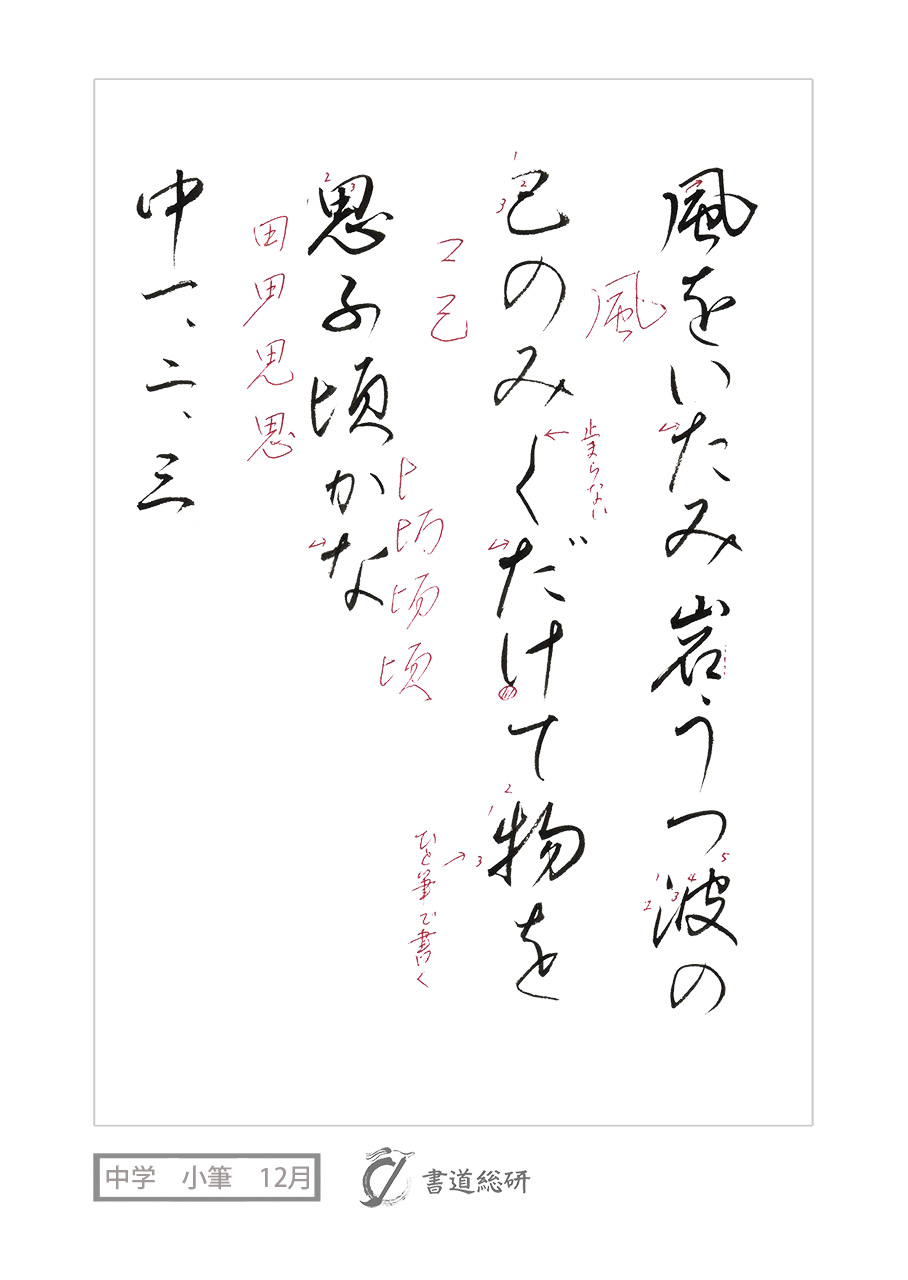 風をいたみ岩うつ波の
1 2 3 4 5
風
己のみくだけて物を
1 2 3
止まらない
1 2 3
ひと筆で書く
コ
己
思ふ頃かな
1 2 3
頃
田
思
中一、二、三
中学 小筆 12月
書道総研